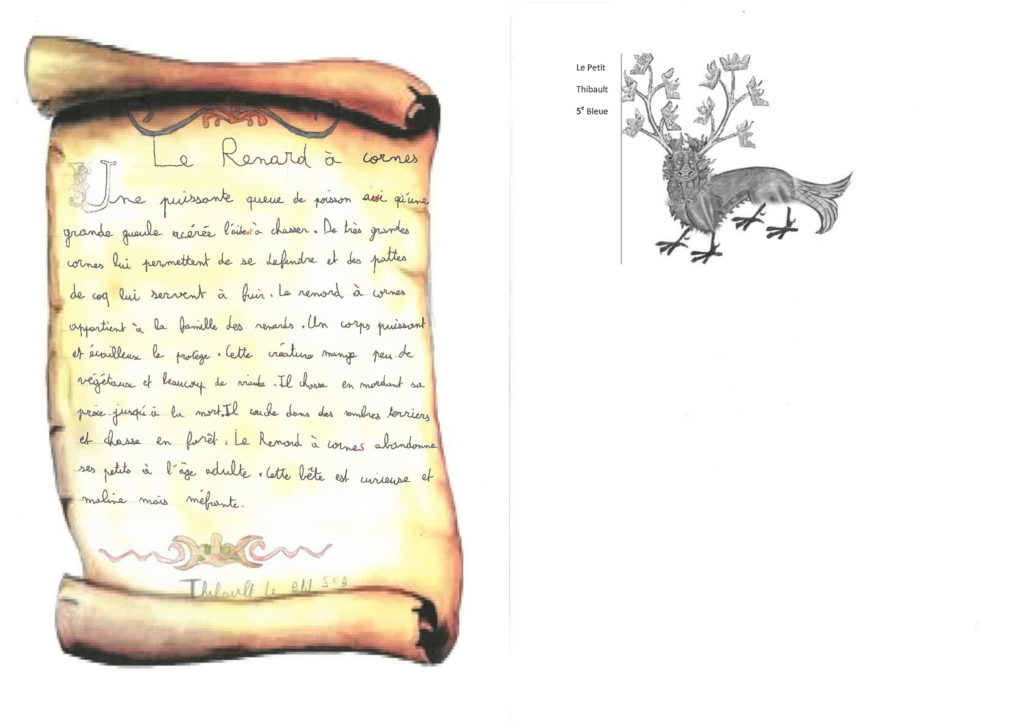 Le Renard à cornes
Une puissante queue de poisson ainsi qu'une
grande gueule acérée l'aident à chasser. De très grandes
cornes lui permettent de se defendre et des pattes
de coq lui servent à fuir. Le renard à cornes
appartient à la famille des renards. Un corps puissant
et écailleux le protège. Cette créature mange peu de
végétaux et beaucoup de viande. Il chasse en mordant sa
proie jusqu'à la mort. Il couche dans des sombres terriers
et chasse en forêt. Le Renard à cornes abandonne
ses petits à l'âge adulte. Cette bête est curieuse et
maline mais méfiante.
Thibault Le Petit 5eB
Le Petit
Thibault
5e Bleue